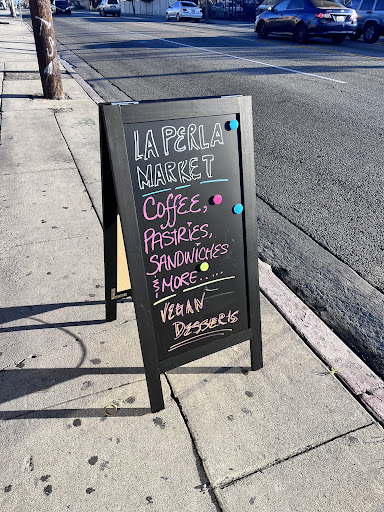 LA PERLA
MARKET
Coffee,
PASTRIES,
SANDWICHES
& MORE.....
VEGAN
DESSERTS